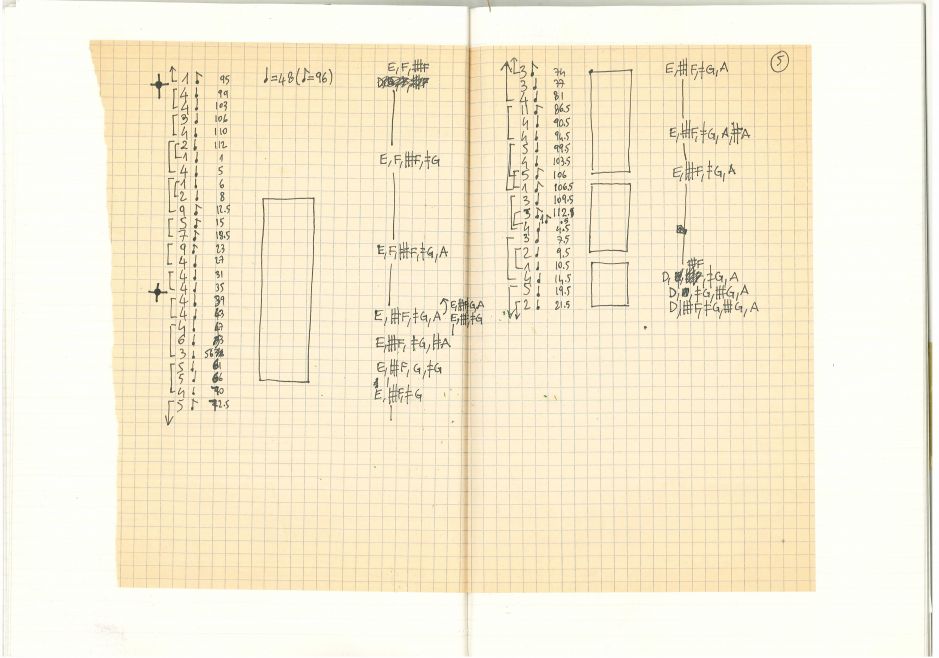 1 ♪ 95
4 ♩ 99
4 ♩ 103
3 ♩ 106
4 ♩ 110
2 ♩ 112
1 ♩ 1
4 ♩ 5
1 ♩ 6
2 ♩ 8
9 ♪ 12.5
5 ♪ 15
7 ♪ 18.5
9 ♪ 23
4 ♩ 27
4 ♩ 31
4 ♩ 35
4 ♩ 39
4 ♩ 43
4 ♩ 47
6 ♩
3 ♩
5 ♩ 61
5 ♩ 66
4 ♩ 70
5 ♪ 72.5
♩=48 (♪=96)
E, F, ⧣F
E, F, ⧣F, ‡G
E, F, ⧣F, ‡G, A
E, ⧣F, ‡G, A
E, ⧣F, ‡G, ⧣A
E, ⧣F, G, ‡G
E, ⧣F, ‡G
5
3 ♪ 74
3 ♩ 77
4 ♩ 81
11 ♪ 86.5
4 ♩ 90.5
4 ♩ 94.5
5 ♩ 99.5
4 ♩ 103.5
5 ♪ 106
1 ♪ 106.5
3 ♩ 109.5
4 ♩ 4.5
3 ♩ 7.5
2 ♩ 9.5
1 ♩ 10.5
4 ♩ 14.5
5 ♩ 19.5
2 ♩ 21.5
E, ⧣F, ‡G, A
E, ⧣F, ‡G, A, ⧣A
E, ⧣F, ‡G, A
⧣F
D, ‡G, A
D, ‡G, ⧣G, A
D, ⧣F, ‡G, ⧣G, A